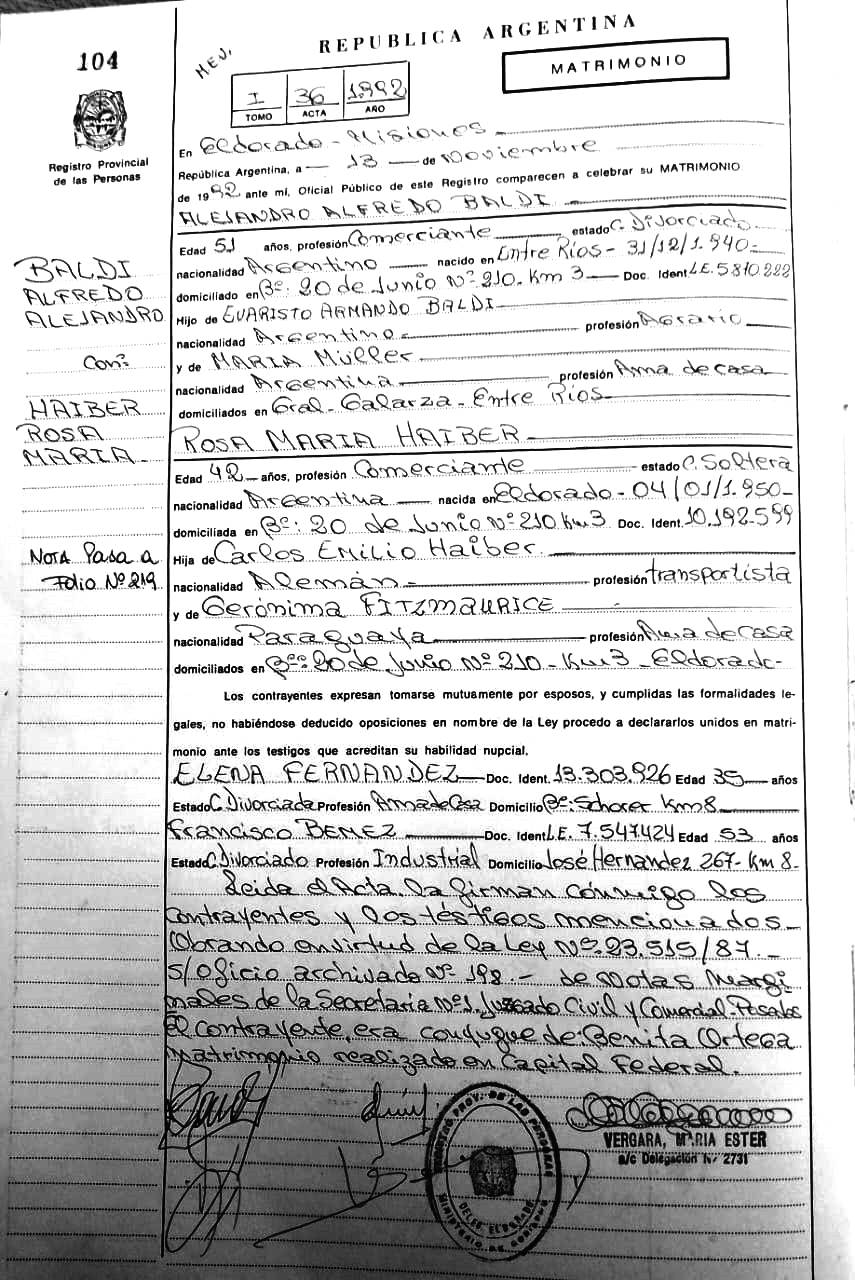 104
HEV.
REPUBLICA ARGENTINA
MATRIMONIO
I 36 1.992
TOMO ACTA AÑO
Registro Provincial
de las Personas
En Eldorado - Misiones
República Argentina, a — 13 — de Noviembre
de 1992 ante mí, Oficial Público de este Registro comparecen a celebrar su MATRIMONIO
ALEJANDRO ALFREDO BALDI
Edad 51 años, profesión Comerciante estado C. Divorciado
nacionalidad Argentino nacido en Entre Ríos - 31/12/1.940-
domiciliado en Bº: 20 de Junio Nº 210. Km 3 Doc. Ident. L.E. 5810.222
Hijo de EVARISTO ARMANDO BALDI
nacionalidad Argentino profesión Agrario
y de MARIA Müller
nacionalidad Argentina profesión Ama de casa
domiciliados en Gral- Galarza - Entre Ríos
ROSA MARIA HAIBER
Edad 42 años, profesión Comerciante estado C. Soltera
nacionalidad Argentina nacida en Eldorado - 04/01/1.950-
domiciliada en Bº: 20 de Junio Nº 210 Km3 Doc. Ident. 10.192.599
Hija de Carlos Emilio Haiber
nacionalidad Alemán profesión transportista
y de Gerónima FITZMAURICE
nacionalidad Paraguaya profesión Ama de casa
domiciliados en Bº: 20 de Junio Nº 210 - Km3 - Eldorado-
BALDI
ALFREDO
ALEJANDRO
Con:
HAIBER
ROSA
MARIA
NOTA Pasa a
Folio Nº 219
Los contrayentes expresan tomarse mutuamente por esposos, y cumplidas las formalidades le-
gales, no habiéndose deducido oposiciones en nombre de la Ley procedo a declararlos unidos en matri-
monio ante los testigos que acreditan su habilidad nupcial.
ELENA FERNANDEZ Doc. Ident. 13.303.926 Edad 35 años
Estado C. Divorciada Profesión Ama de Casa Domicilio Bº: Schorer Km8
Francisco BENEZ Doc. Ident L.E. 7.547.424 Edad 53 años
Estado C. Divorciado Profesión Industrial Domicilio José Hernandez 267- Km 8-
Leida el Acta, la firman cónmigo los
contrayentes y los téstigos mencionados
Obrando en virtud de la Ley Nº 23.515/87.-
s/oficio archivado Nº 198.- de Notas Margi
nales de la Secretaria Nº1. Juzgado Civil y Comercial-Posadas
El contrayente, era conyugue de: Benita Ortega
matrimonio realizado en Capital Federal.
REGISTRO PROV. DE LAS PERSONAS
DELEG. ELDORADO
MINISTERIO DE GOBIERNO
VERGARA, MARIA ESTER
a/c Delegación Nº 2731